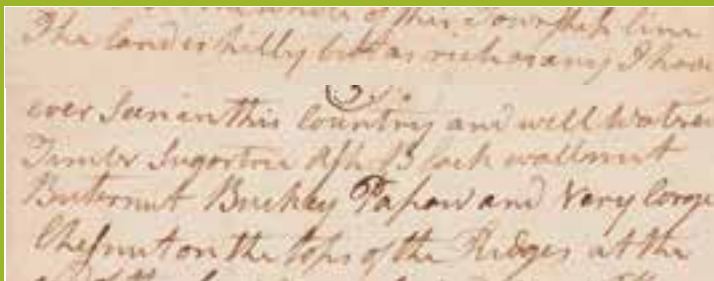 the whole of this Township line
The land is hilly but as rich as any I have
ever Seen in this Country and well Watered
Timber Sugartree Ash Black wallnut
Buternut Buckey Papaw and Very large
Chesnut on the tops of the Ridges at the